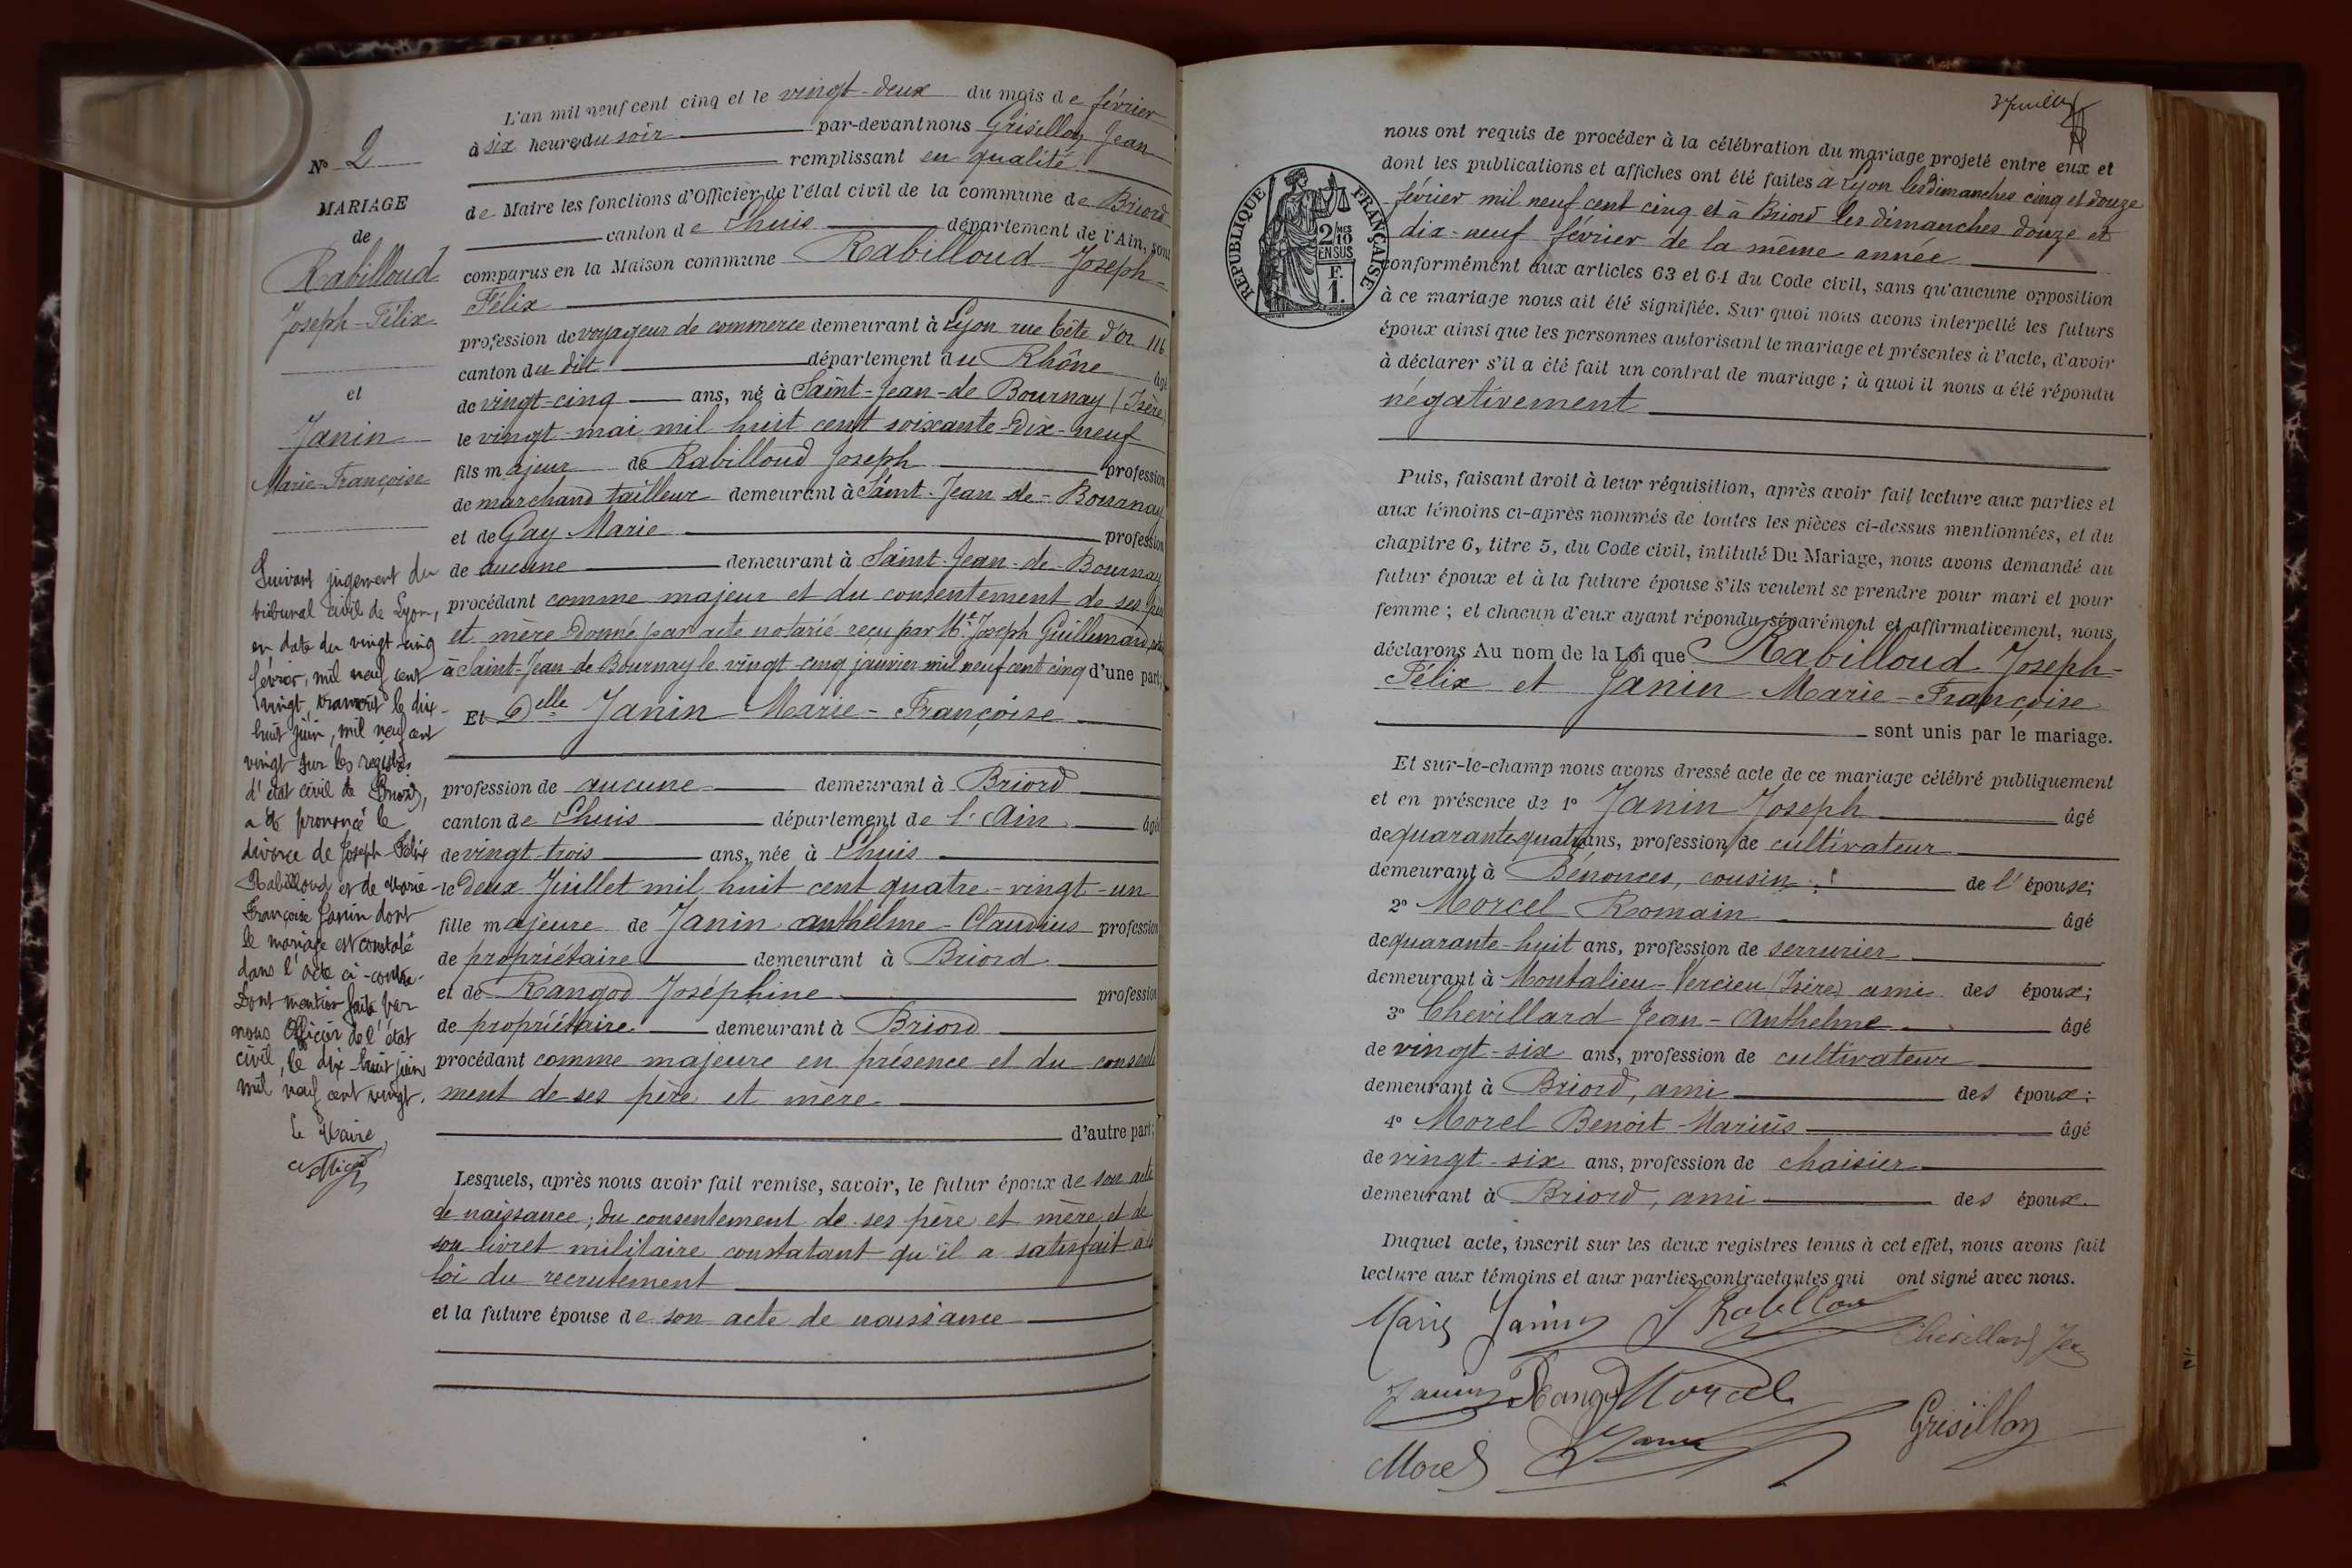 N° 2
MARIAGE
de
Rabilloud
Joseph-Félix
et
Janin
Marie-Françoise
Suivant jugement du
tribunal civil de Lyon,
en date du vingt-cinq
février, mil neuf cent
vingt, transcrit le dix-
huit juin, mil neuf cent
vingt sur les registres
d'état civil de Briord,
a été prononcé le
divorce de Joseph-Félix
Rabilloud et de Marie-
Françoise Janin dont
le mariage est constaté
dans l'acte ci-contre.
Dont mention faite par
nous Officier de l'état
civil, le dix-huit juin
mil neuf cent vingt.
Le Maire,
L'an mil neuf cent cinq et le vingt-deux du mois de février
à six heures du soir par-devant nous Grisillon Jean
remplissant en qualité
de Maire les fonctions d'Officier de l'état civil de la commune de Briord
canton de Lhuis département de l'Ain, sont
comparus en la Maison commune Rabilloud Joseph-
Félix
profession de voyageur de commerce demeurant à Lyon rue tête d'or 116
canton du dit département du Rhône âgé
de vingt-cinq ans, né à Saint-Jean-de Bournay (Isère)
le vingt mai mil huit cent soixante-dix-neuf
fils majeur de Rabilloud Joseph profession
de marchand tailleur demeurant à Saint-Jean-de-Bournay
et de Gay Marie profession
de aucune demeurant à Saint-Jean-de-Bournay
procédant comme majeur et du consentement de ses père
et mère donné par acte notarié reçu par Me Joseph Guillemard,
à Saint-Jean-de Bournay le vingt-cinq janvier mil neuf cent cinq d'une part;
Et Delle Janin Marie-Françoise
profession de aucune demeurant à Briord
canton de Lhuis département de l'Ain âgée
de vingt-trois ans, née à Lhuis
le deux Juillet mil huit cent quatre-vingt-un
fille majeure de Janin Anthelme-Claudius profession
de propriétaire demeurant à Briord
et de Rangod Joséphine profession
de propriétaire demeurant à Briord
procédant comme majeure en présence et du consente
ment de ses père et mère
d'autre part;
Lesquels, après nous avoir fait remise, savoir, le futur époux de son acte
de naissance; du consentement de ses père et mère et de
son livret militaire constatant qu'il a satisfait à la
loi du recrutement
et la future épouse de son acte de naissance
REPUBLIQUE FRANÇAISE
2/10 MES
EN SUS
F.
1.
nous ont requis de procéder à la célébration du mariage projeté entre eux et
dont les publications et affiches ont été faites à Lyon les dimanches cinq et douze
février mil neuf cent cinq et à Briord les dimanches douze et
dix-neuf février de la même année
conformément aux articles 63 et 64 du Code civil, sans qu'aucune opposition
à ce mariage nous ait été signifiée. Sur quoi nous avons interpellé les futurs
époux ainsi que les personnes autorisant le mariage et présentes à l'acte, d'avoir
à déclarer s'il a été fait un contrat de mariage; à quoi il nous a été répondu
négativement
Puis, faisant droit à leur réquisition, après avoir fait lecture aux parties et
aux témoins ci-après nommés de toutes les pièces ci-dessus mentionnées, et du
chapitre 6, titre 5, du Code civil, intitulé Du Mariage, nous avons demandé au
futur époux et à la future épouse s'ils veulent se prendre pour mari et pour
femme; et chacun d'eux ayant répondu séparément et affirmativement, nous
déclarons Au nom de la Loi que Rabilloud Joseph-
Félix et Janin Marie-Françoise
sont unis par le mariage.
Et sur-le-champ nous avons dressé acte de ce mariage célébré publiquement
et en présence de 1° Janin Joseph âgé
de quarante quatre ans, profession de cultivateur
demeurant à Bénonces, cousin de l'épouse;
2° Morcel Romain âgé
de quarante-huit ans, profession de serrurier
demeurant à Montalieu-Vercieu (Isère) ami des époux;
3° Chevillard Jean-Anthelme âgé
de vingt-six ans, profession de cultivateur
demeurant à Briord, ami des époux;
4° Morel Benoit-Marius âgé
de vingt-six ans, profession de chaisier
demeurant à Briord, ami des époux.
Duquel acte, inscrit sur les deux registres tenus à cet effet, nous avons fait
lecture aux témoins et aux parties contractantes qui ont signé avec nous.
Marie Janin J Rabilloud Chevillard Jean
Janin Rangod Morcel
Morel Janin Grisillon